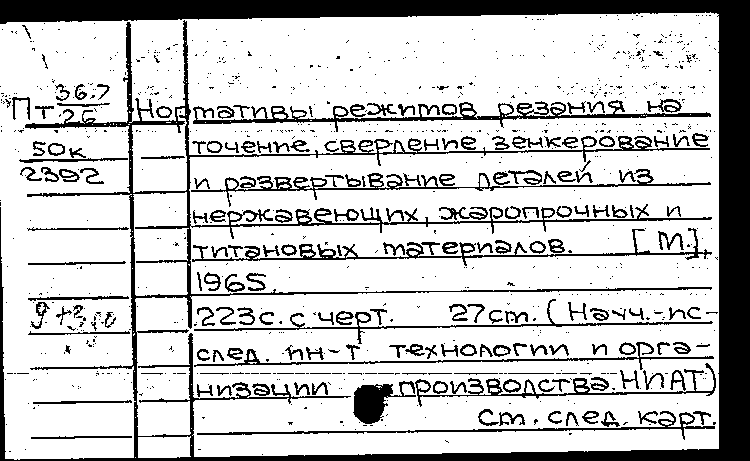 Пт 36.7/26 Нормативы режимов резания на
50к точение, сверление, зенкерование
2392 и развертывание деталей из
нержавеющих, жаропрочных и
титановых материалов. [М.],
1965.
223с. с черт. 27см. (Науч.-ис-
след. ин-т технологии и орга-
низации производства. НИАТ)
См. след. карт.